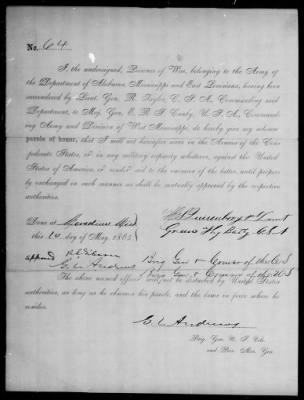 No. 64
I, the undersigned, Prisoner of War, belonging to the Army of
the Department of Alabama, Mississippi and East Louisiana, having been
surrendered by Lieut. Gen. R. Taylor, C. S. A., Commanding said
Department, to Maj. Gen. E. R. S. Canby, U. S. A., Command-
ing Army and Division of West Mississippi, do hereby give my solemn
parole of honor, that I will not hereafter serve in the Armies of the Con-
federate States, or in any military capacity whatever, against the United
States of America, or render aid to the enemies of the latter, until proper-
ly exchanged in such manner as shall be mutually approved by the respective
authorities.
Lieut
Done at Meridian Miss
Batty C S A
this 14 day of May, 1865
R L Gibson Brig Gen & Comsr of the C S
E. L. Andrews Brig Gen & Comsr of the U S
The above named officer will not be disturbed by United States
authorities, as long as he observes his parole, and the laws in force where he
resides.
E. L. Andrews
Brig. Gen. U. S. Vols.
and Bvt. Maj. Gen.